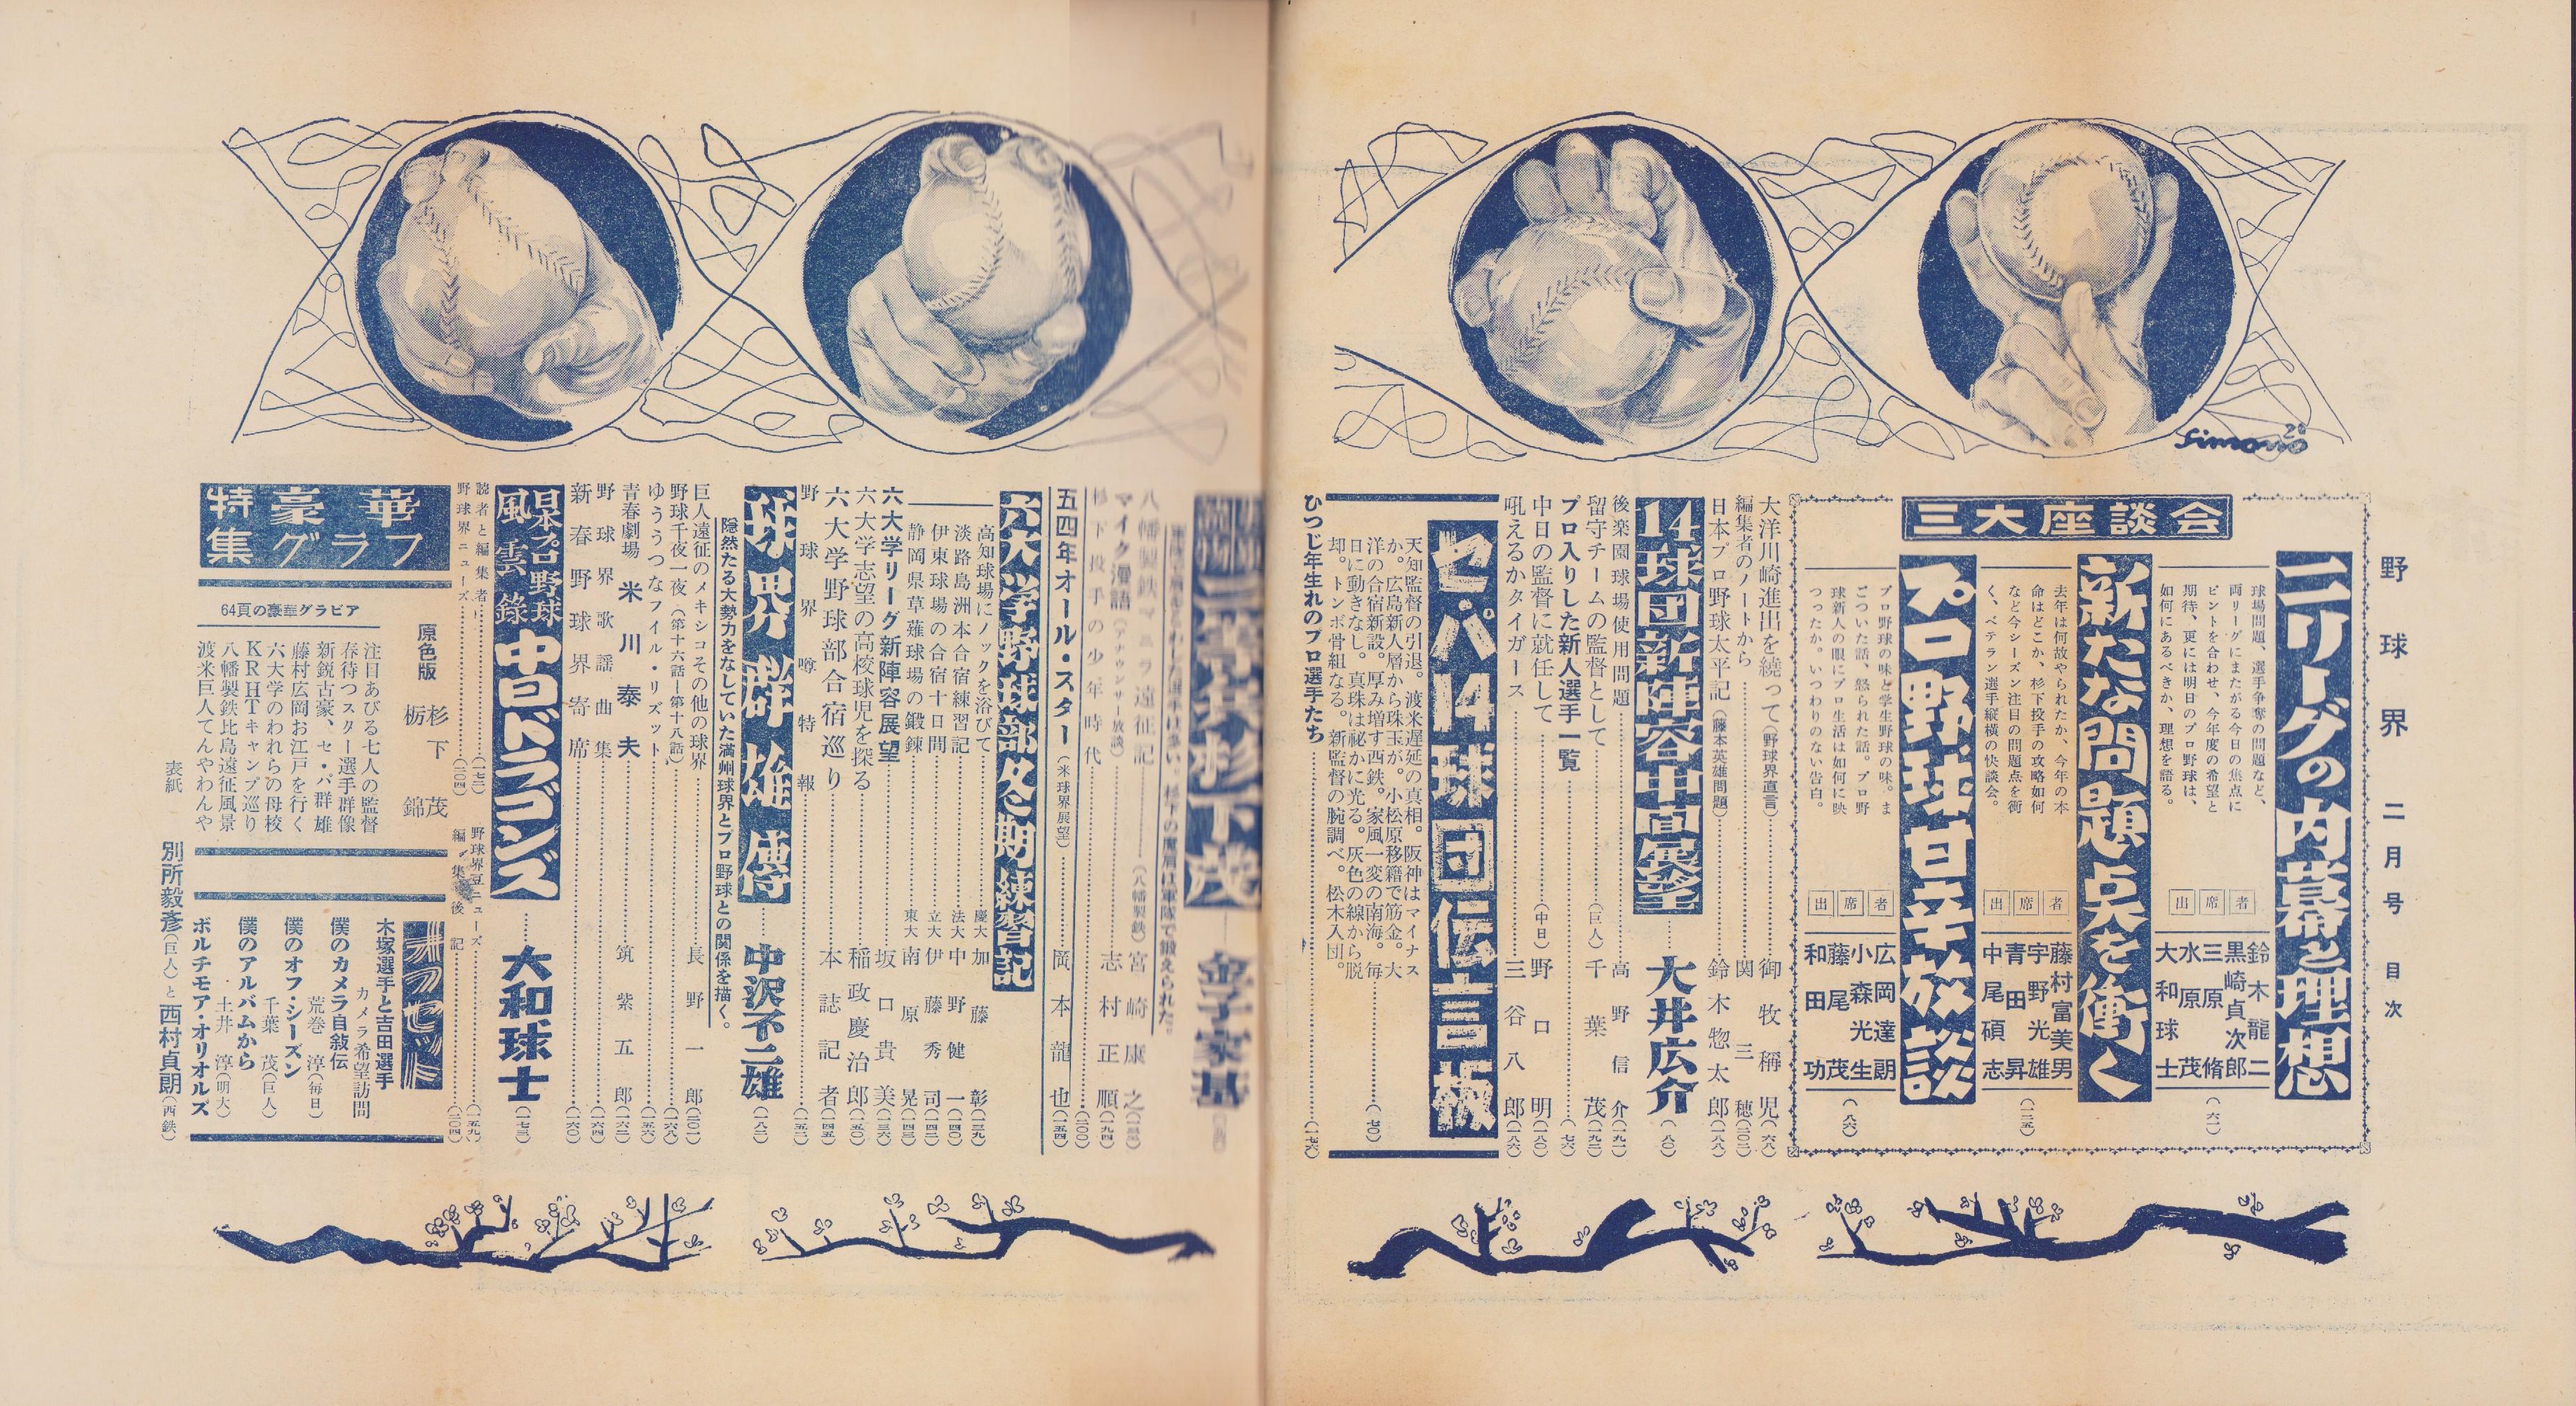 野球界 二月号 目次
三大座談会
二リーグの内幕と理想
球場問題、選手争奪の問題など、
両リーグにまたがる今日の焦点に
ピントを合わせ、今年度の希望と
期待、更には明日のプロ野球は、
如何にあるべきか、理想を語る。
出席者
鈴木龍二
黒崎貞次郎
三原脩
水原茂
大和球士
(六一)
新たな問題点を衝く
去年は何故やられたか、今年の本
命はどこか、杉下投手の攻略如何
など今シーズン注目の問題点を衝
く、ベテラン選手縦横の快談会。
出席者
藤村富美男
宇野光雄
青田昇
中尾碩志
(一三五)
プロ野球甘辛放談
プロ野球の味と学生野球の味。ま
ごついた話、怒られた話。プロ野
球新人の眼にプロ生活は如何に映
つったか。いつわりのない告白。
出席者
広岡達朗
小森光生
藤尾茂
和田功
(八六)
大洋川崎進出を繞って(野球界直言)御牧稱児(六八)
編集者のノートから 関三穂(二〇二)
日本プロ野球太平記(藤本英雄問題)鈴木惣太郎(一八八)
14球団新陣容中間展望 大井広介(八〇)
後楽園球場使用問題 高野信介(九二)
留守チームの監督として(巨人)千葉茂(一九二)
プロ入りした新人選手一覧(七六)
中日の監督に就任して(中日)野口明(一八〇)
吼えるかタイガース 三谷八郎(一八六)
セ・パ14球団伝言板
天知監督の引退。渡米遅延の真相。阪神はマイナス
か。広島新人層から珠玉が。小松原移籍で筋金。大
洋の合宿新設。厚み増す西鉄。家風一変の南海。毎
日に動きなし。真珠は秘かに光る。灰色の線から脱
却。トンボ骨組なる。新監督の腕調べ。松木入団。
(七〇)
ひつじ年生れのプロ選手たち(一七六)
杉下茂
金子家基
八幡製鉄マニラ遠征記(八幡製鉄)宮崎康之
マイク漫語(アナウンサー放談)志村正順(一九四)
杉下投手の少年時代(二〇〇)
五四年オール・スター(米球界展望)岡本龍也(一五四)
六大学野球部冬期練習記
高知球場にノックを浴びて 慶大 加藤彰(一三九)
淡路島洲本合宿練習記 法大 中野健一(一四〇)
伊東球場の合宿十日間 立大 伊藤秀司(一四二)
静岡県草薙球場の鍛錬 東大 南原晃(一四三)
六大学リーグ新陣容展望 坂口貴美(一三六)
六大学志望の高校球児を探る 稲政慶治郎(一五〇)
六大学野球部合宿巡り 本誌記者(一四五)
野球界噂特報(一五二)
球界群雄傳 中沢不二雄(一八二)
隠然たる大勢力をなしていた満州球界とプロ野球との関係を描く。
巨人遠征のメキシコその他の球界 長野一郎(二〇一)
野球千夜一夜(第十六話―第十八話)(一六八)
ゆううつなフイル・リズット(一五六)
青春劇場 米川泰夫 筑紫五郎(一六二)
野球界歌謡曲集(一六四)
新春野球界寄席(一六〇)
日本プロ野球風雲錄 中日ドラゴンズ 大和球士(一七三)
読者と編集者(一七二) 野球界豆ニュース(一五九)
野球界ニュース(二〇四) 編集後記(二〇四)
豪華特集グラフ
64頁の豪華グラビア
原色版 杉下茂
栃錦
注目あびる七人の監督
春待つスター選手群像
新鋭古豪、セ・パ群雄
藤村広岡お江戸を行く
六大学のわれらの母校
KRHTキャンプ巡り
八幡製鉄比島遠征風景
渡米巨人てんやわんや
木塚選手と吉田選手
カメラ希望訪問
僕のカメラ自敍伝
荒巻淳(毎日)
僕のオフ・シーズン
千葉茂(巨人)
僕のアルバムから
土井淳(明大)
ボルチモア・オリオルズ
表紙 別所毅彦(巨人)と西村貞朗(西鉄)
Simono